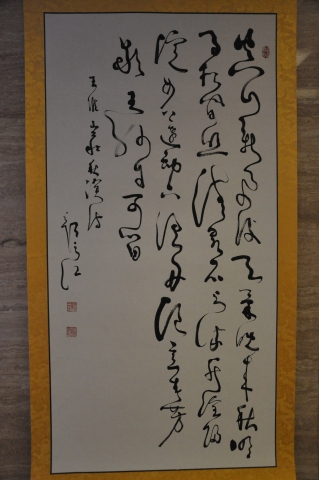 空山新雨後天氣晚來秋明
月松間照清泉石上流竹喧歸
浣女蓮動下漁舟隨意春芳
歇王孫自可留
王維山居秋暝詩